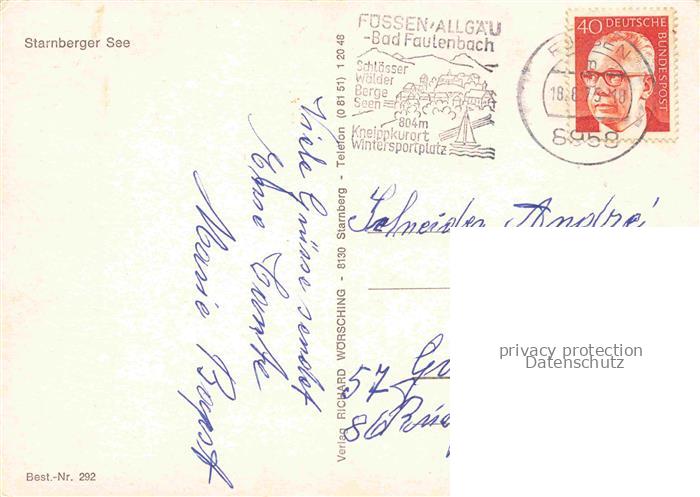 Starnberger See
FÜSSEN/ALLGÄU
-Bad Faulenbach
Schlösser
Wälder
Berge
Seen
804m
Kneippkurort
Wintersportplatz
40 DEUTSCHE
BUNDESPOST
FÜSSEN
8958
Viele Grüsse sendet
Eure Tante
Maria
Verlag RICHARD WÖRSCHING - 8130 Starnberg - Telefon (0 81 51) 1 20 48
Schneider André
57
86
privacy protection
Datenschutz
Best.-Nr. 292